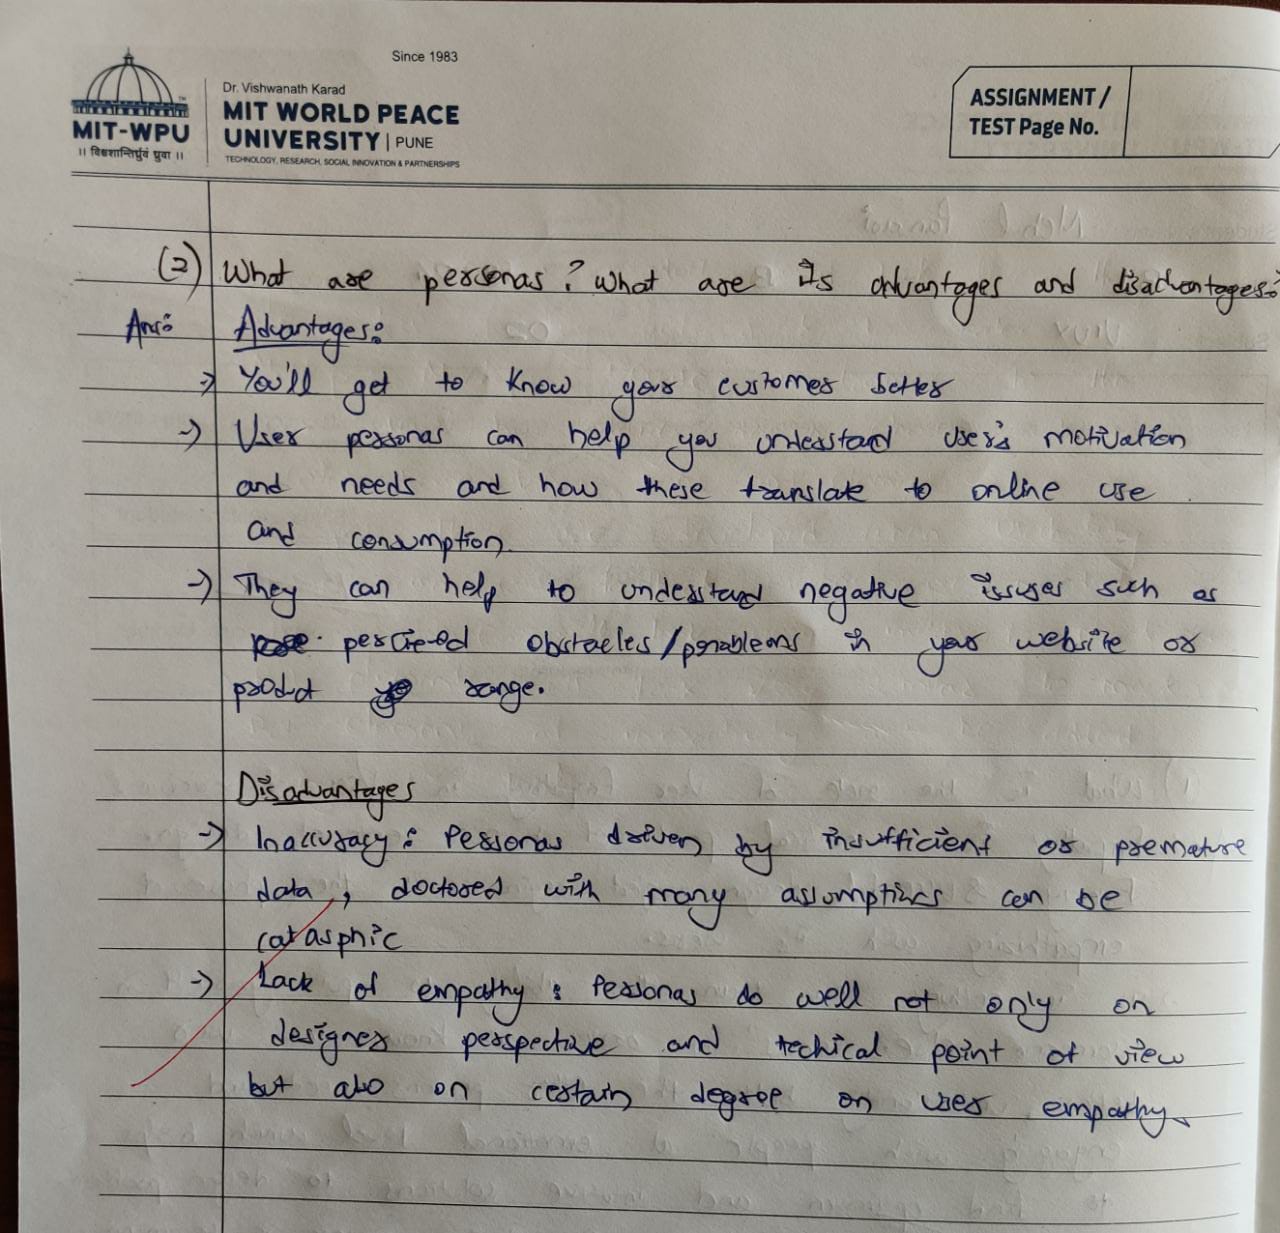 Since 1983
Dr. Vishwanath Karad
MIT WORLD PEACE
UNIVERSITY | PUNE
TECHNOLOGY, RESEARCH, SOCIAL INNOVATION & PARTNERSHIPS
MIT-WPU
॥ विश्वशान्तिर्ध्रुवं ध्रुवा ॥
ASSIGNMENT /
TEST Page No.
(2) What are personas? What are its advantages and disadvantages?
Ans: Advantages:
→ You'll get to know your customer better
→ User personas can help you understand user's motivation
and needs and how these translate to online use
and consumption.
→ They can help to understand negative issues such as
percieved obstacles/problems in your website or
product range.
Disadvantages
→ Inaccuracy: Personas driven by insufficient or premature
data, doctored with many assumptions can be
catasphic
→ Lack of empathy: Personas do well not only on
designer perspective and techical point of view
but also on certain degree on user empathy.